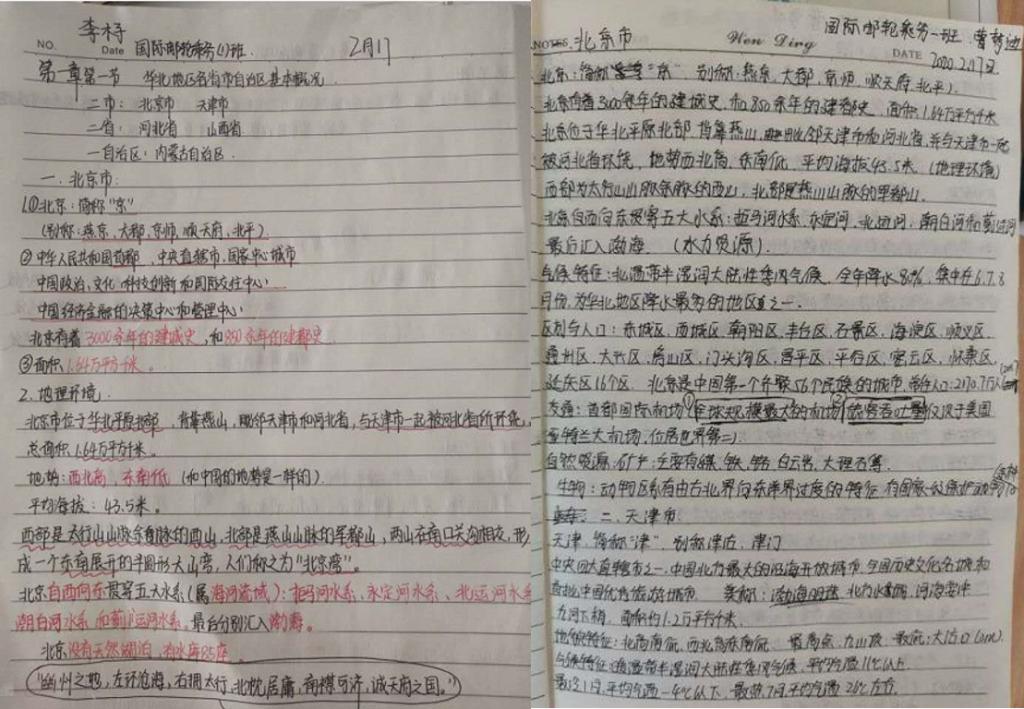 李梓
NO.
Date 国际邮轮乘务(1)班. 2月17
第一章第一节 华北地区各省市自治区基本概况.
二市: 北京市 天津市
二省: 河北省 山西省
一自治区: 内蒙古自治区.
一. 北京市:
1.①北京: 简称"京"
(别称: 燕京、大都、京师、顺天府、北平).
②中华人民共和国首都、中央直辖市、国家中心城市
中国政治、文化、科技创新和国际交往中心;
中国经济金融的决策中心和管理中心;
北京有着3000余年的建城史, 和850余年的建都史
③面积 1.64万平方千米.
2. 地理环境.
北京市位于华北平原北部, 背靠燕山, 毗邻天津市和河北省, 与天津市一起被河北省所环绕,
总面积1.64万平方千米.
地势: 西北高, 东南低 (和中国的地势是一样的)
平均海拔: 43.5米.
西部是太行山山脉余脉的西山, 北部是燕山山脉的军都山, 两山在南口关沟相交, 形
成一个东南展开的半圆形大山弯, 人们称之为"北京湾".
北京自西向东贯穿五大水系(属海河流域): 拒马河水系、永定河水系、北运河水系
潮白河水系 和蓟运河水系, 最后分别汇入渤海.
北京没有天然湖泊. 有水库85座.
"幽州之地, 左环沧海, 右拥太行, 北枕居庸, 南襟河济, 诚天府之国."
NOTES. 北京市 Wen Ding 国际邮轮乘务一班 曹梦迪
DATE 2020.2.17日
北京: 简称"京", 别称: 燕京、大都、京师、顺天府、北平).
北京有着3000余年的建城史, 和850余年的建都史. 面积1.64万平方千米
北京位于华北平原北部, 背靠燕山, 毗邻天津市和河北省, 并与天津市一起
被河北省环绕, 地势西北高, 东南低. 平均海拔43.5米. (地理环境)
西部为太行山山脉余脉的西山, 北部是燕山山脉的军都山.
北京自西向东贯穿五大水系: 拒马河水系、永定河、北运河、潮白河和蓟运河
最后汇入渤海. (水力资源).
气候特征: 北温带半湿润大陆性季风气候. 全年降水80%, 集中在6.7.8
月份, 为华北地区降水最多的地区之一.
区划与人口: 东城区、西城区、朝阳区、丰台区、石景区、海淀区、顺义区、
通州区、大兴区、房山区、门头沟区、昌平区、平谷区、密云区、怀柔区、
延庆区16个区. 北京是中国第一个齐聚56个民族的城市. 常住人口: 2170.7万人
交通: 首都国际机场①全球规模最大的机场②旅客吞吐量仅次于美国
亚特兰大机场, 位居世界第二)
自然资源: 矿产: 主要有煤、铁、铬、白云岩、大理石等.
生物: 动物区系有由古北界向东洋界过度的特征. 有国家一级保护动物
二. 天津市:
天津, 简称"津". 别称津沽、津门
中央四大直辖市之一. 中国北方最大的沿海开放城市. 全国历史文化名城和
首批中国优秀旅游城市. 美称: 渤海明珠.
九河下梢. 面积约1.2万平方千米
地貌特征: 北高南低、西北高东南低. 最高点: 九山顶. 最低: 大沽口(0m).
气候特征: 暖温带半湿润大陆性季风气候. 平均气温11℃以上
最冷1月, 平均气温-4℃以下, 最热7月, 平均气温26℃左右.